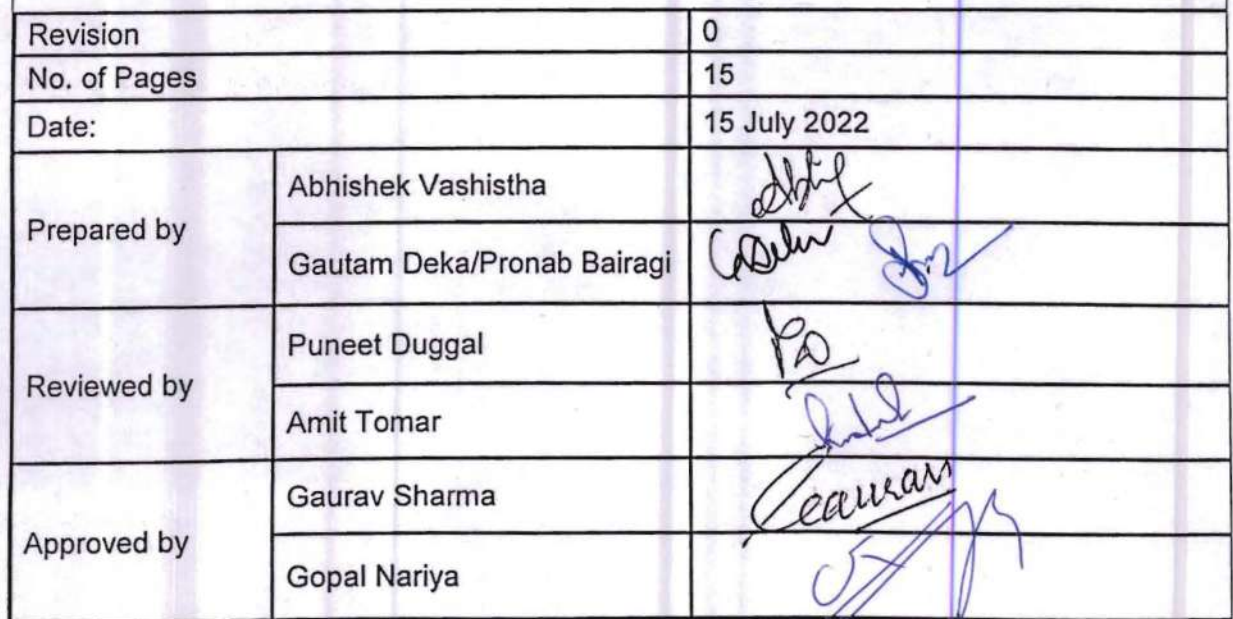 Revision 0
No. of Pages 15
Date: 15 July 2022
Prepared by
Abhishek Vashistha
Gautam Deka/Pronab Bairagi
Reviewed by
Puneet Duggal
Amit Tomar
Approved by
Gaurav Sharma
Gopal Nariya